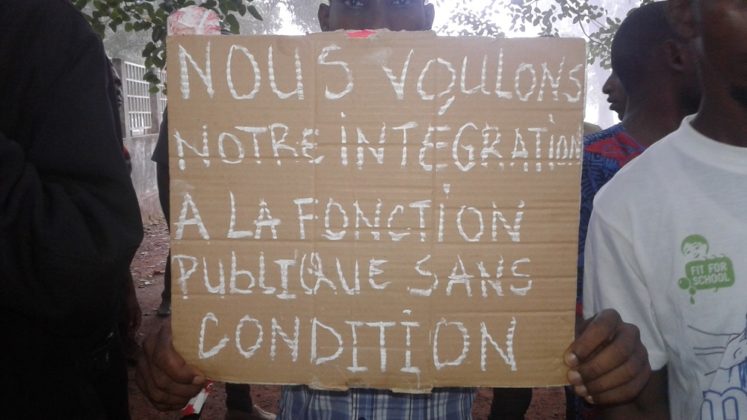 NOUS VOULONS
NOTRE INTÉGRATION
A LA FONCTION
PUBLIQUE SANS
CONDITION
FIT FOR
SCHOOL